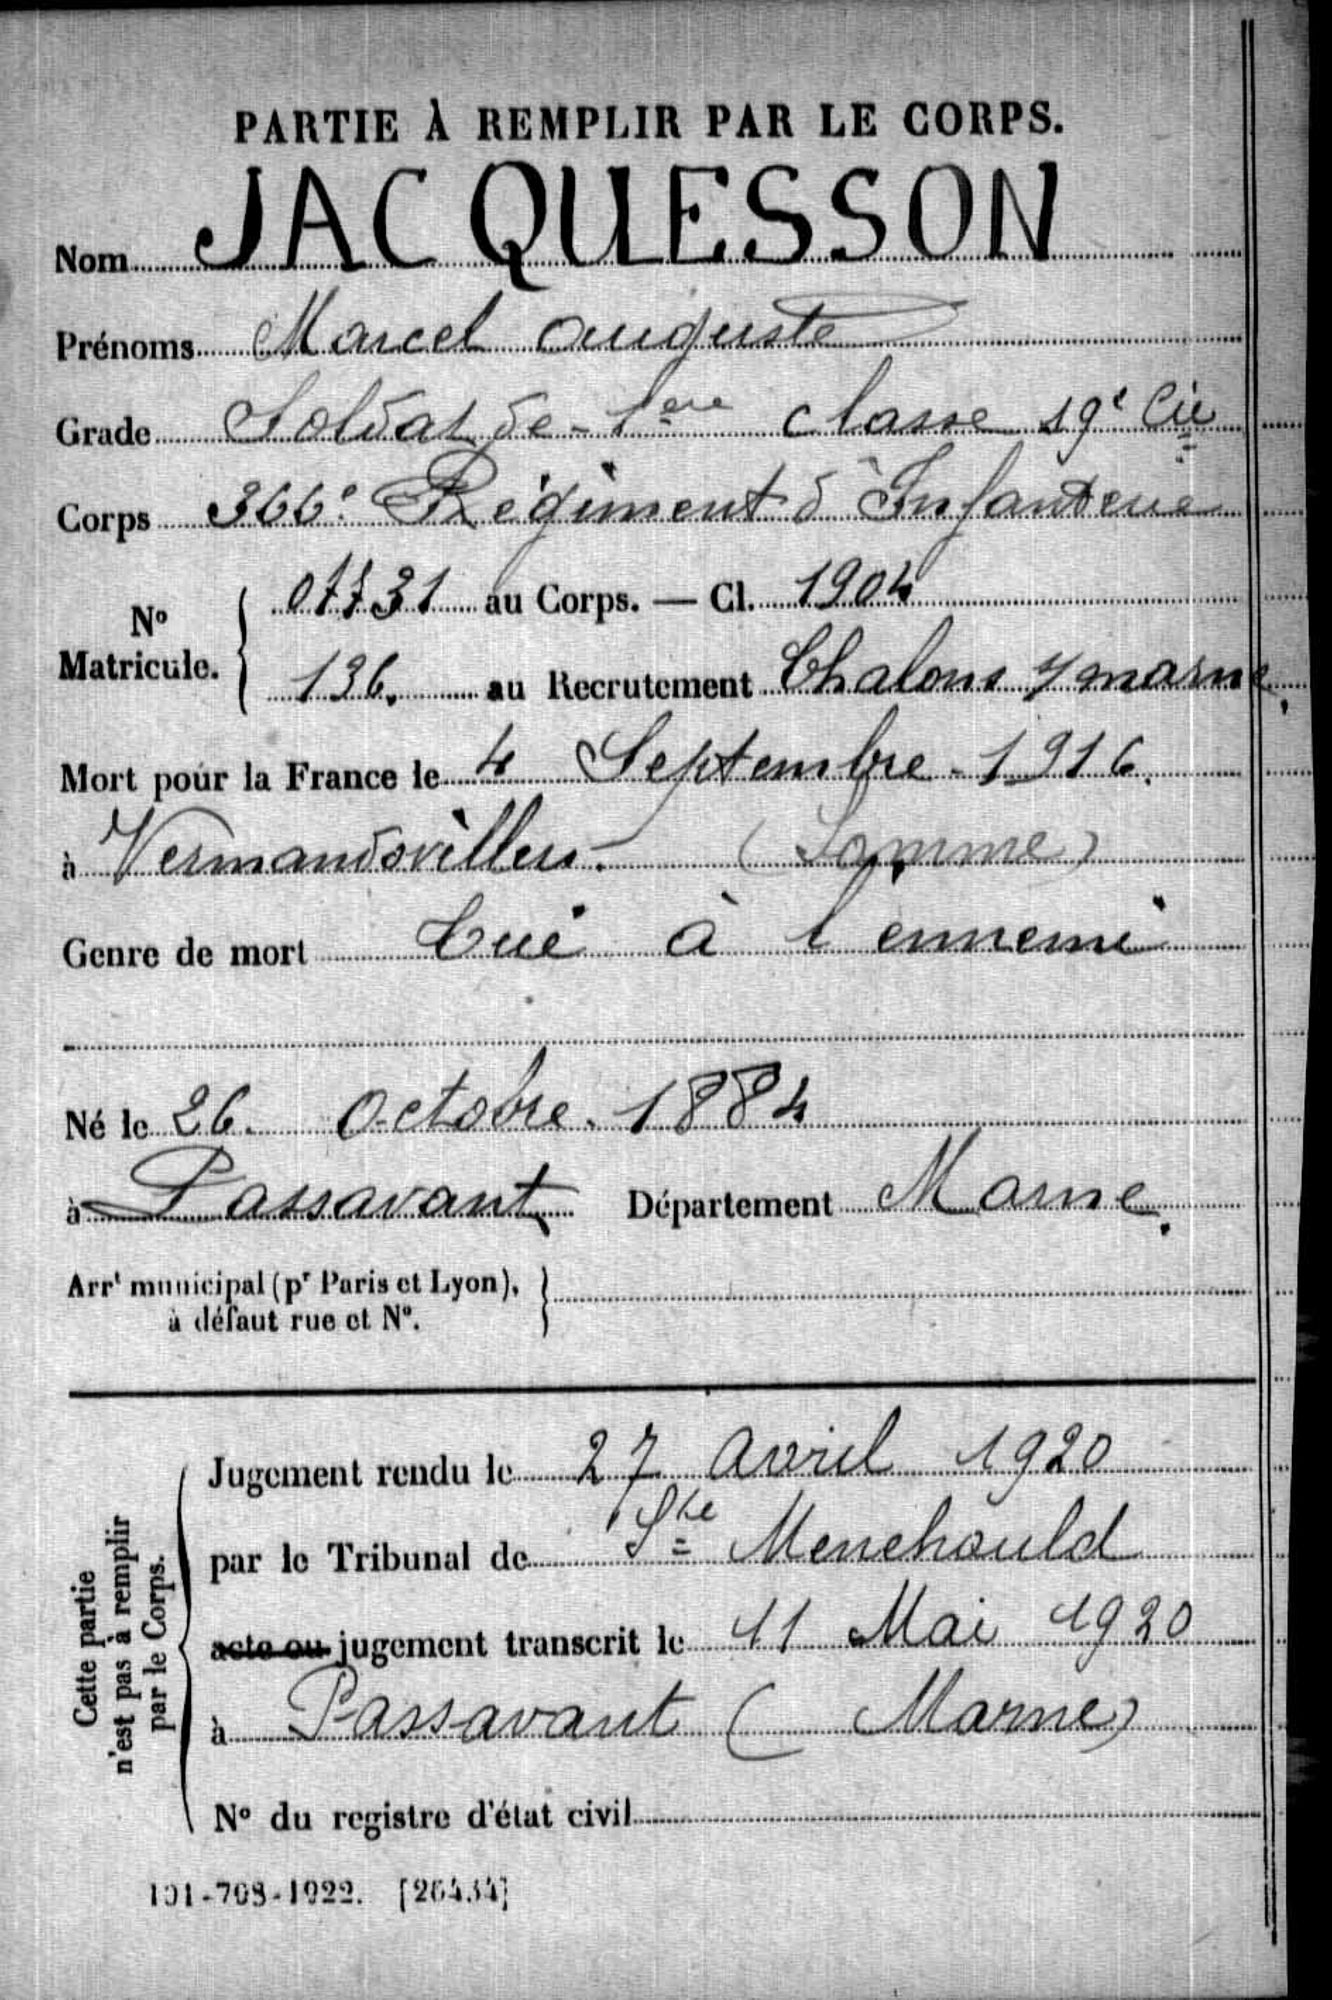 PARTIE À REMPLIR PAR LE CORPS.
Nom JACQUESSON
Prénoms Marcel Auguste
Grade Soldat de 1ere classe 19e Cie
Corps 366e Régiment d'Infanterie
No Matricule. { 07731 au Corps. — Cl. 1904
136. au Recrutement Chalons s/marne.
Mort pour la France le 4 Septembre 1916.
à Vermandovillers. (Somme)
Genre de mort tué à l'ennemi
Né le 26. Octobre. 1884
à Passavant Département Marne.
Arrt municipal (pr Paris et Lyon), }
à défaut rue et N°.
Cette partie
n'est pas à remplir
par le Corps.
Jugement rendu le 27 Avril 1920
par le Tribunal de Ste Menehould
acte ou jugement transcrit le 11 Mai 1920
à Passavant (Marne)
N° du registre d'état civil
101-708-1922. [26434]